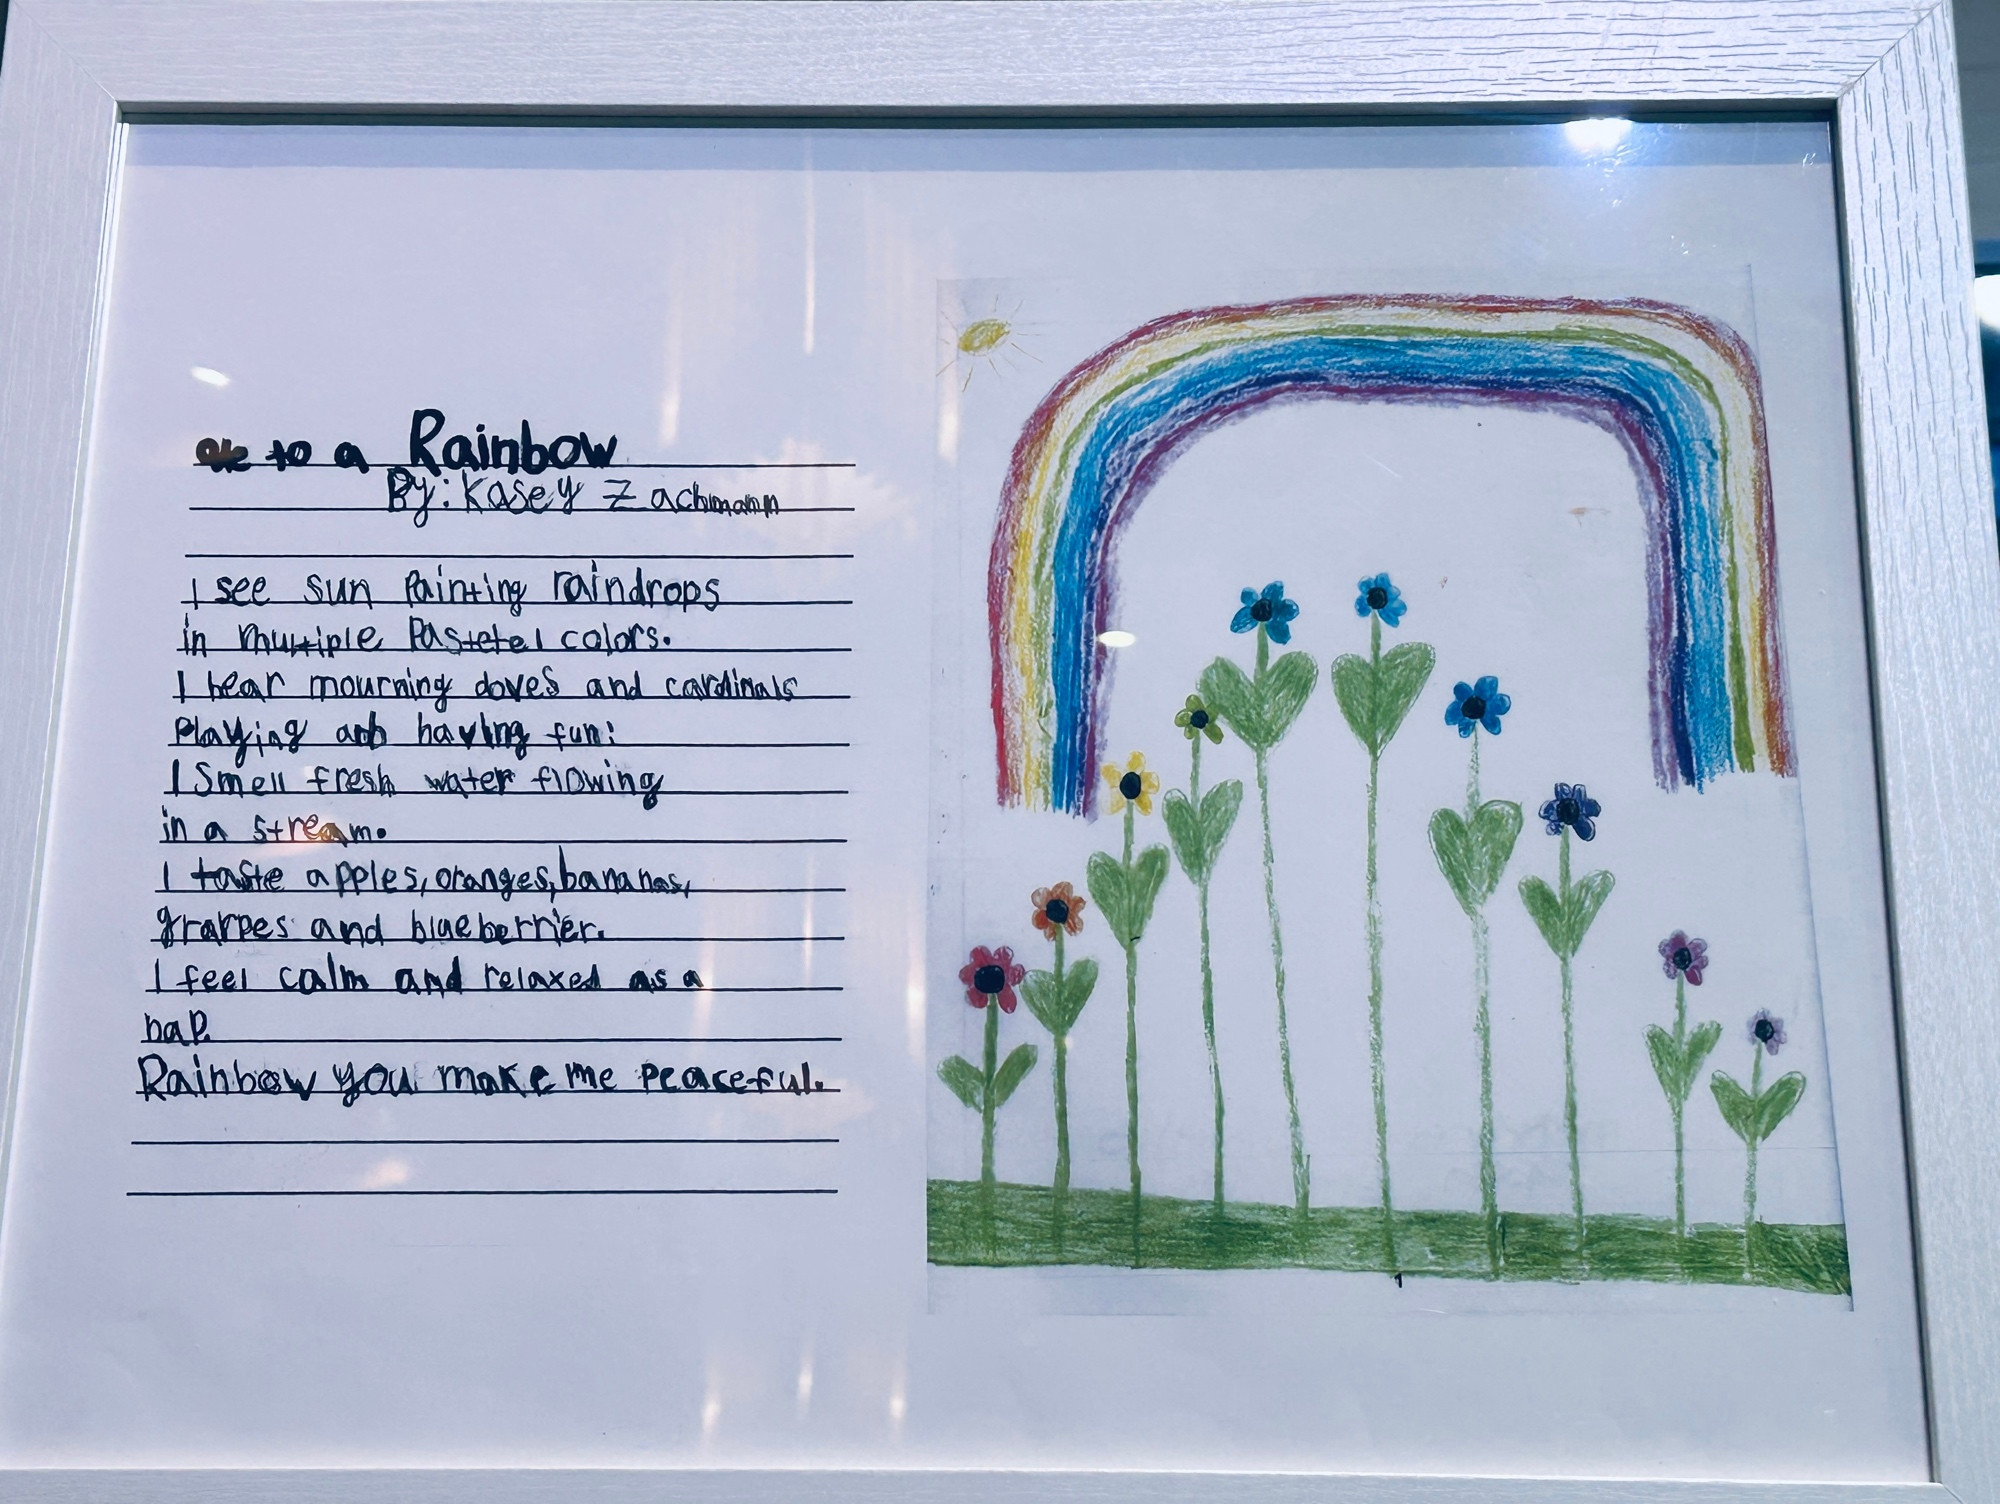 to a Rainbow
By: Kasey Zachmann
I see sun Painting raindrops
in multiple Pastetel colors.
I hear mourning doves and cardinals
Playing and having fun!
I Smell fresh water flowing
in a stream.
I taste apples, oranges, bananas,
grarpes and blueberrier.
I feel calm and relaxed as a
nap.
Rainbow you make me peaceful.